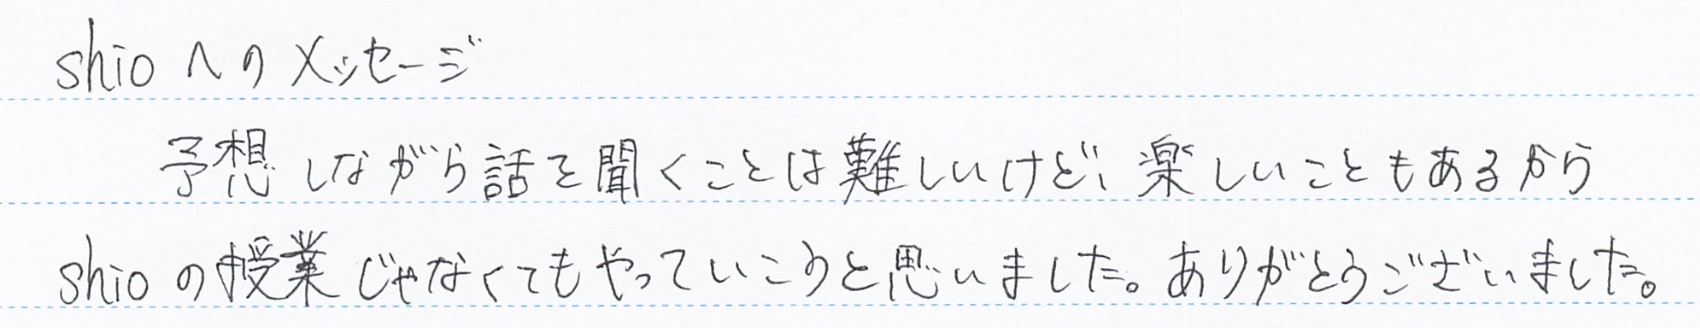 shioへのメッセージ
予想しながら話を聞くことは難しいけど、楽しいこともあるから
shioの授業じゃなくてもやっていこうと思いました。ありがとうございました。